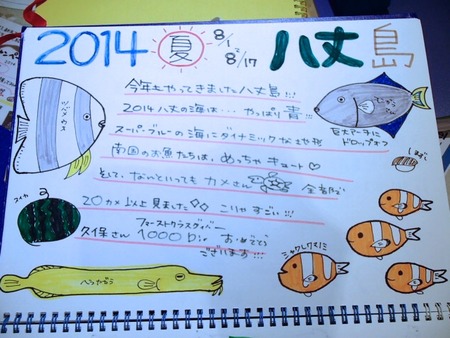 2014 夏 8/1〜8/17 八丈島
今年もやってきました八丈島!!!
2014八丈の海は・・・やっぱり青!!!
スーパーブルーの海にダイナミックな地形
南国のお魚たちは、めっちゃキュート♡
そして、なんといっても カメさん
20カメ以上見ました◇◇ こりゃすごい!!!
ファーストクラスダイバー
久保さん 1000Div おめでとう
ございます!!!
巨大アーチに
ドロップオフ
スイカ
へらやがら
シャクレクマノミ